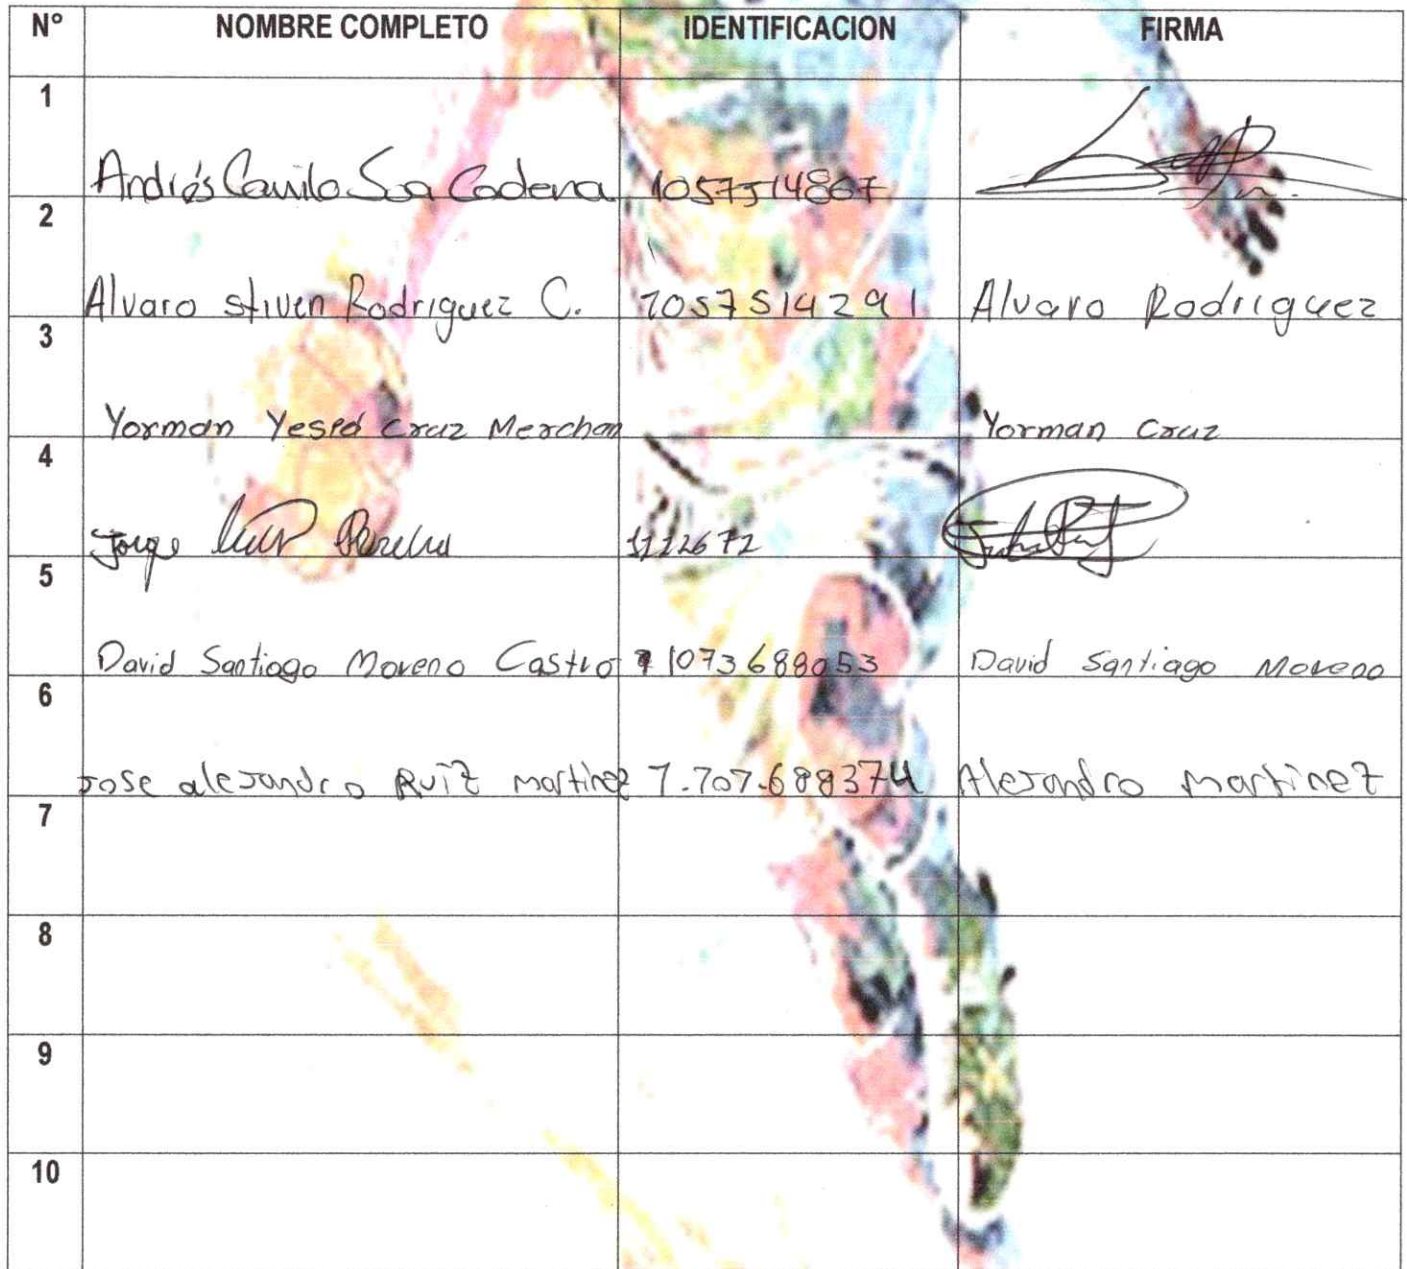 N° NOMBRE COMPLETO IDENTIFICACION FIRMA
1 Andrés Camilo Soa Cadena 1057514867
2 Alvaro stiven Rodriguez C. 1057514291 Alvaro Rodriguez
3 Yorman Yesid Cruz Merchan Yorman Cruz
4 Jorge 1112672
5 David Santiago Moreno Castro 1073688053 David Santiago Moreno
6 Jose alejandro Ruiz martinez 1.707.688374 Alejandro martinez
7
8
9
10